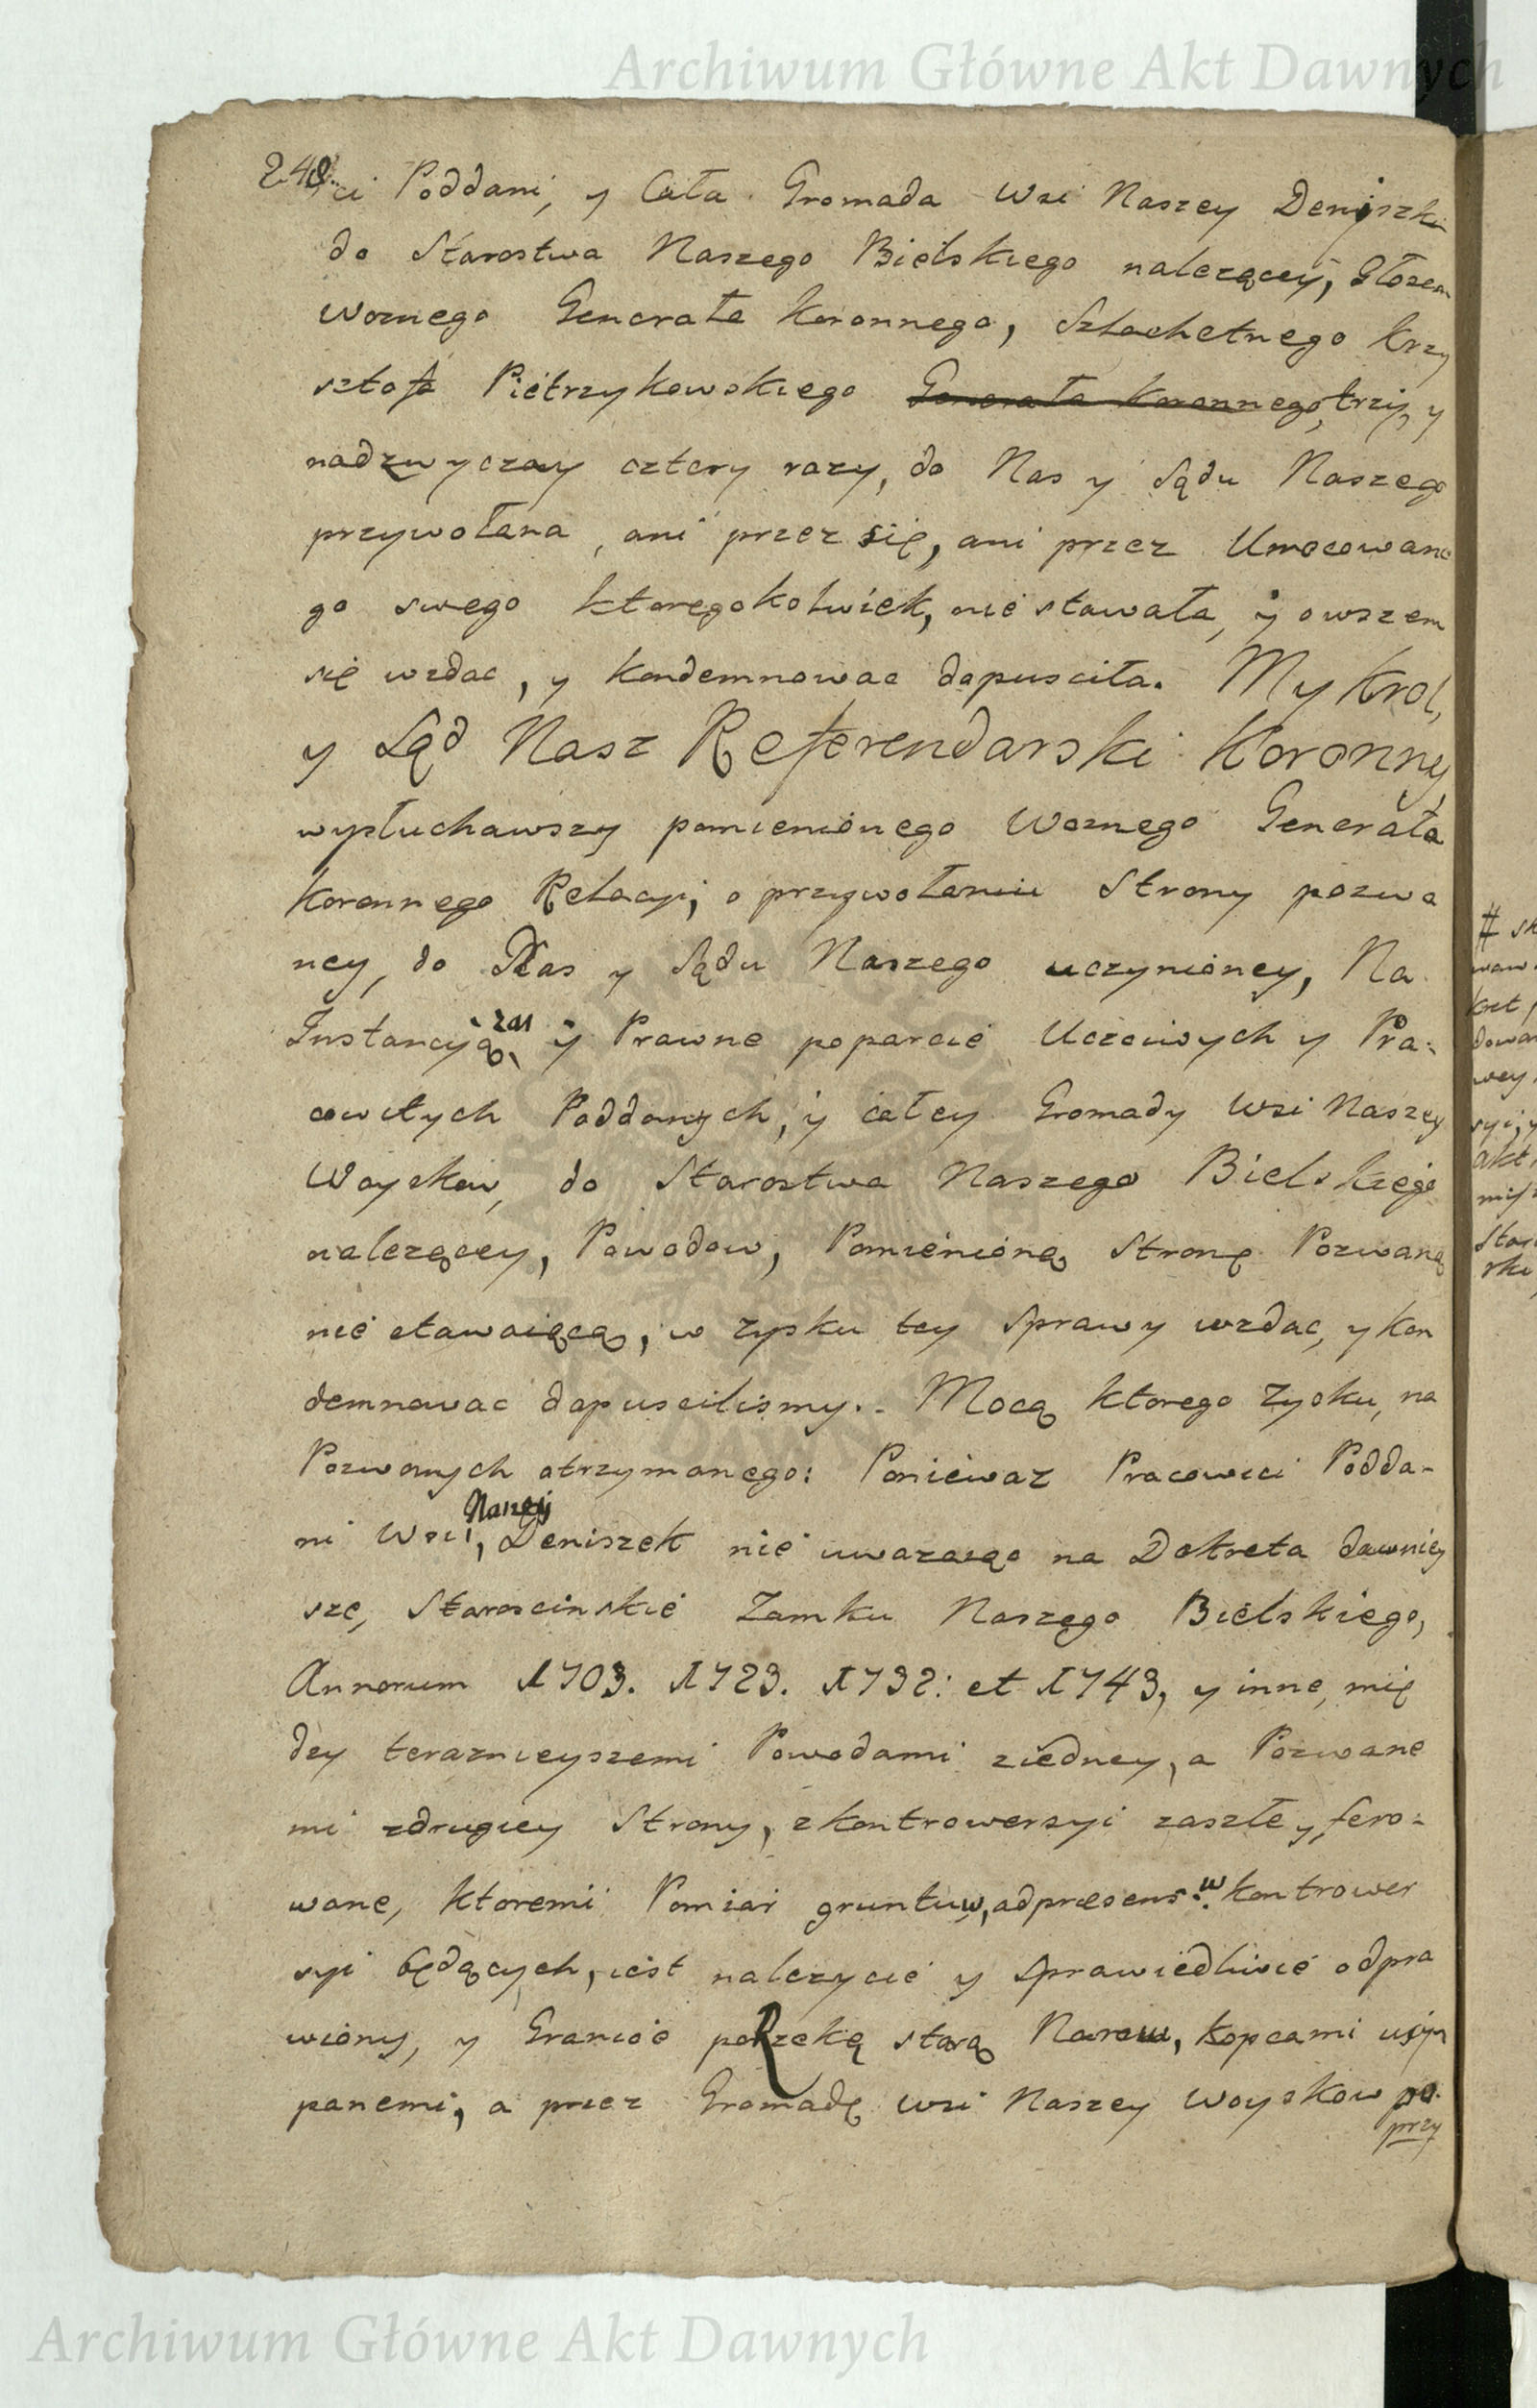 Archiwum Główne Akt Dawnych
248.
ci Poddani, y Cała Gromada Wsi Naszey Deniszki
do Starostwa Naszego Bielskiego nalezącey, Głosem
Woznego Generała Koronnego, Szlachetnego Krzy
sztofa Pietrzykowskiego Generała Koronnego, trzy, y
nadzwyczay cztery razy, do Nas y Sądu Naszego
przywołana, ani przez się, ani przez Umocowane
go swego ktoregokolwiek, nie stawała, y owszem
się wzdac, y kondemnowac dopusciła. My Krol,
y Sąd Nasz Referendarski Koronny,
wysłuchawszy pomienionego Woznego Generała
Koronnego Relacyi, o przywołaniu Strony pozwa
ney, do Nas y Sądu Naszego uczynioney, Na
Instancyą zas y Prawne poparcie Uczciwych y Pra-
cowitych Poddanych, y całey Gromady Wsi Naszey
Woyskow, do Starostwa Naszego Bielskiego
nalezącey, Powodow, Pomienioną Stronę Pozwaną
nie stawaiącą, w zysku tey Sprawy wzdac, y kon
demnowac dopuscilismy. Mocą ktorego Zysku, na
Pozwanych otrzymanego: Poniewaz Pracowici Podda-
ni Wsi, Naszey Deniszek nie uwazaiąc na Dekreta dawniey
sze, Staroscinskie Zamku Naszego Bielskiego,
Annorum 1703. 1723. 1732: et 1743, y inne, mię
dzy teraznieyszemi Powodami ziedney, a Pozwane
mi zdrugiey Strony, z kontrowersyi zaszłey, fero-
wane, ktoremi Pomiar gruntuw, adpræsens w kontrower
syi będących, iest nalezycie y sprawiedliwie odpra
wiony, y Granice po Rzekę starą Narew, kopcami usy
panemi, a przez Gromadę wsi Naszey Woyskow po
przy
Archiwum Główne Akt Dawnych